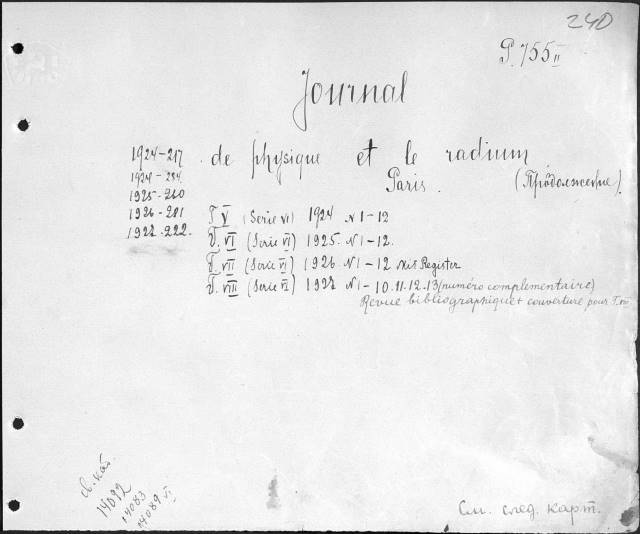 240
P. 755 II
Journal
de physique et le radium
Paris. (Продолжение)
1924-217
1924-234
1925-260
1926-281
1927-222.
T V (Serie VI) 1924 N 1-12
T. VI (Serie VI) 1925. N 1-12.
T. VII (Serie VI) 1926 N 1-12 mit Register
T. VIII (Serie VI) 1927 N 1-10.11.12.13 (numéro complementaire)
Revue bibliographique + couverture pour T. VIII
св. кат.
14092
14083
14089 VI
См. след. карт.